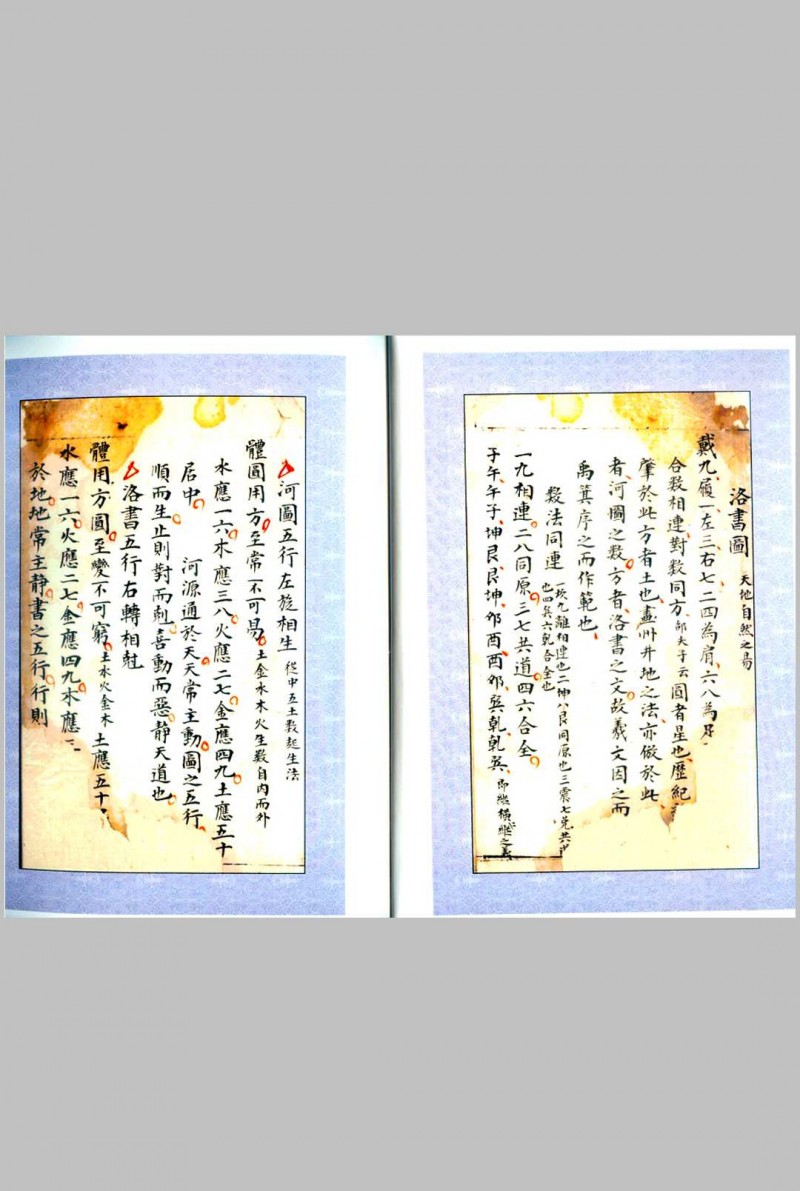 洛書圖 天地自然之易
戴九履一左三右七二四為肩六八為足
合數相連對數同方 邵夫子云 圓者星也歷紀之
肇於此方者土也畫州井地之法亦倣於此
者河圖之數方者洛書之文故羲文因之而
禹箕序之而作範也
數法同連 一坎九離相連也二坤八艮同原也三震七兌共道
也四巽六乾合全也
一九相連二八同原三七共道四六合全
子午午子坤艮艮坤卯酉酉卯巽乾乾巽 即縱橫之義
河圖五行左旋相生 從中五土數起生法
體圓用方至常不可易 土金水木火生數自內而外
水應一六木應三八火應二七金應四九土應五十
居中 河源通於天天常主動圖之五行
順而生止則對而剋喜動而惡靜天道也
洛書五行右轉相尅
體用方圓至變不可窮 土水火金木 土應五十
水應一六火應二七金應四九木應三
於地地常主靜書之五行行則